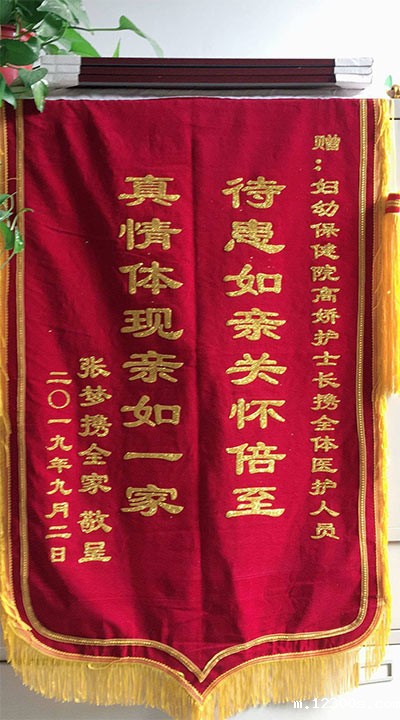 赠：妇幼保健院高娇护士长携全体医护人员
待患如亲关怀倍至
真情体现亲如一家
张梦携全家 敬呈
二〇一九年九月二日